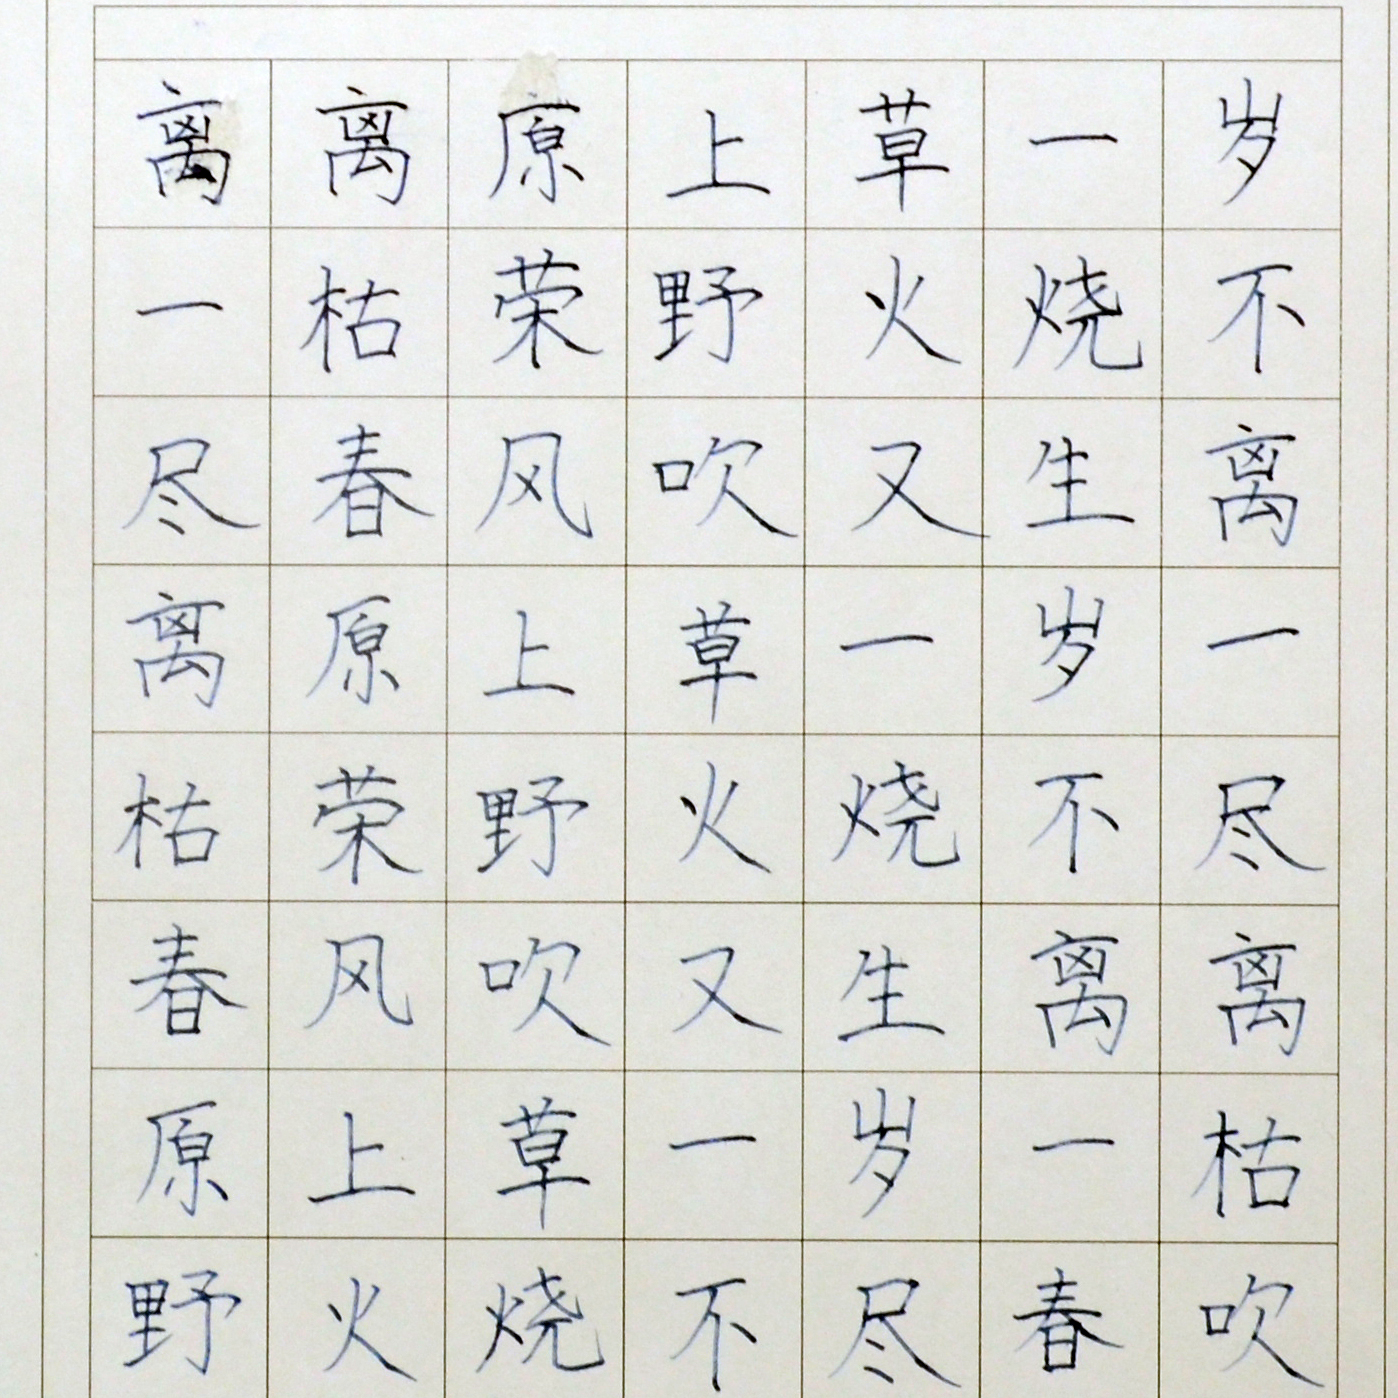 离离原上草一岁
一枯荣野火烧不
尽春风吹又生离
离原上草一岁一
枯荣野火烧不尽
春风吹又生离离
原上草一岁一枯
野火烧不尽春吹